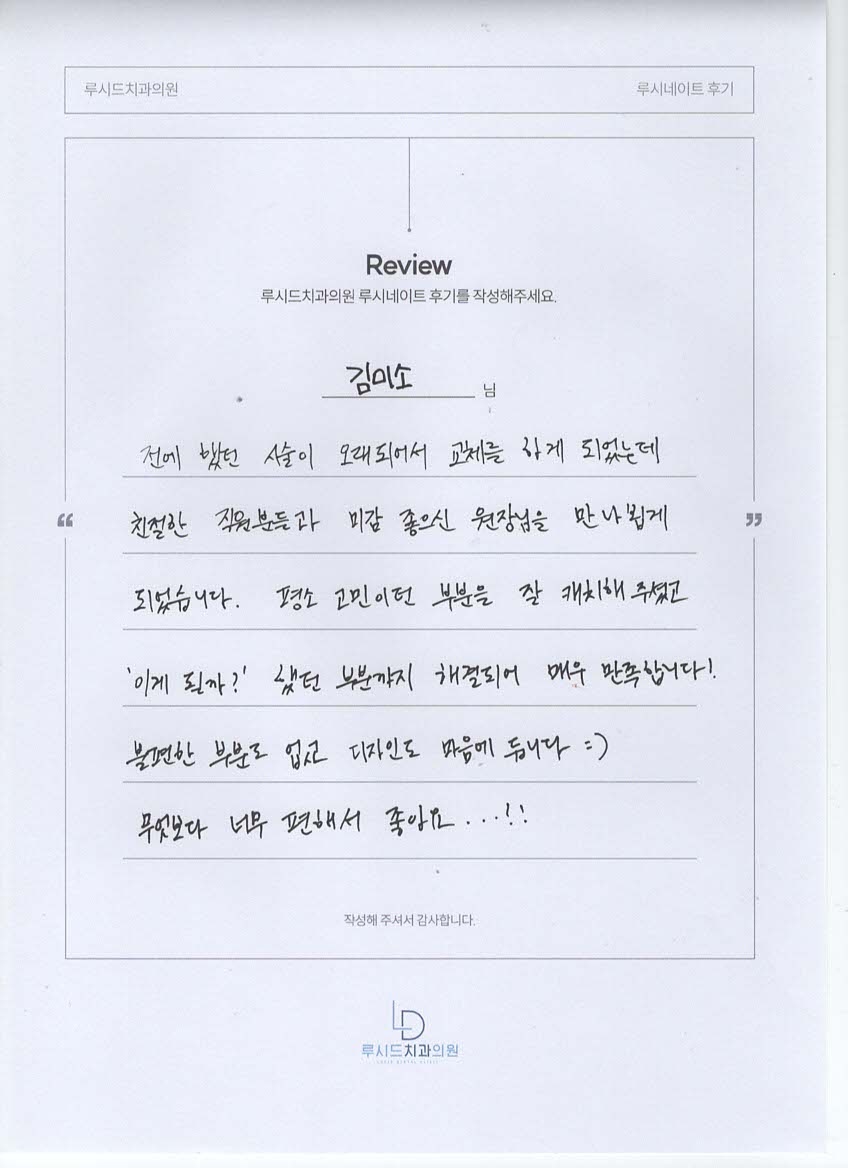 루시드치과의원
루시네이트 후기
Review
루시드치과의원 루시네이트 후기를 작성해주세요.
김미소 님
전에 했던 시술이 오래되어서 교체를 하게 되었는데
“ 친절한 직원분들과 미감 좋으신 원장님을 만나뵙게 ”
되었습니다. 평소 고민이던 부분을 잘 캐치해 주셨고
'이게 될까?' 했던 부분까지 해결되어 매우 만족합니다!
불편한 부분도 없고 디자인도 마음에 듭니다 =)
무엇보다 너무 편해서 좋아요....!!
작성해 주셔서 감사합니다.
LD
루시드치과의원
LUCID DENTAL CLINIC